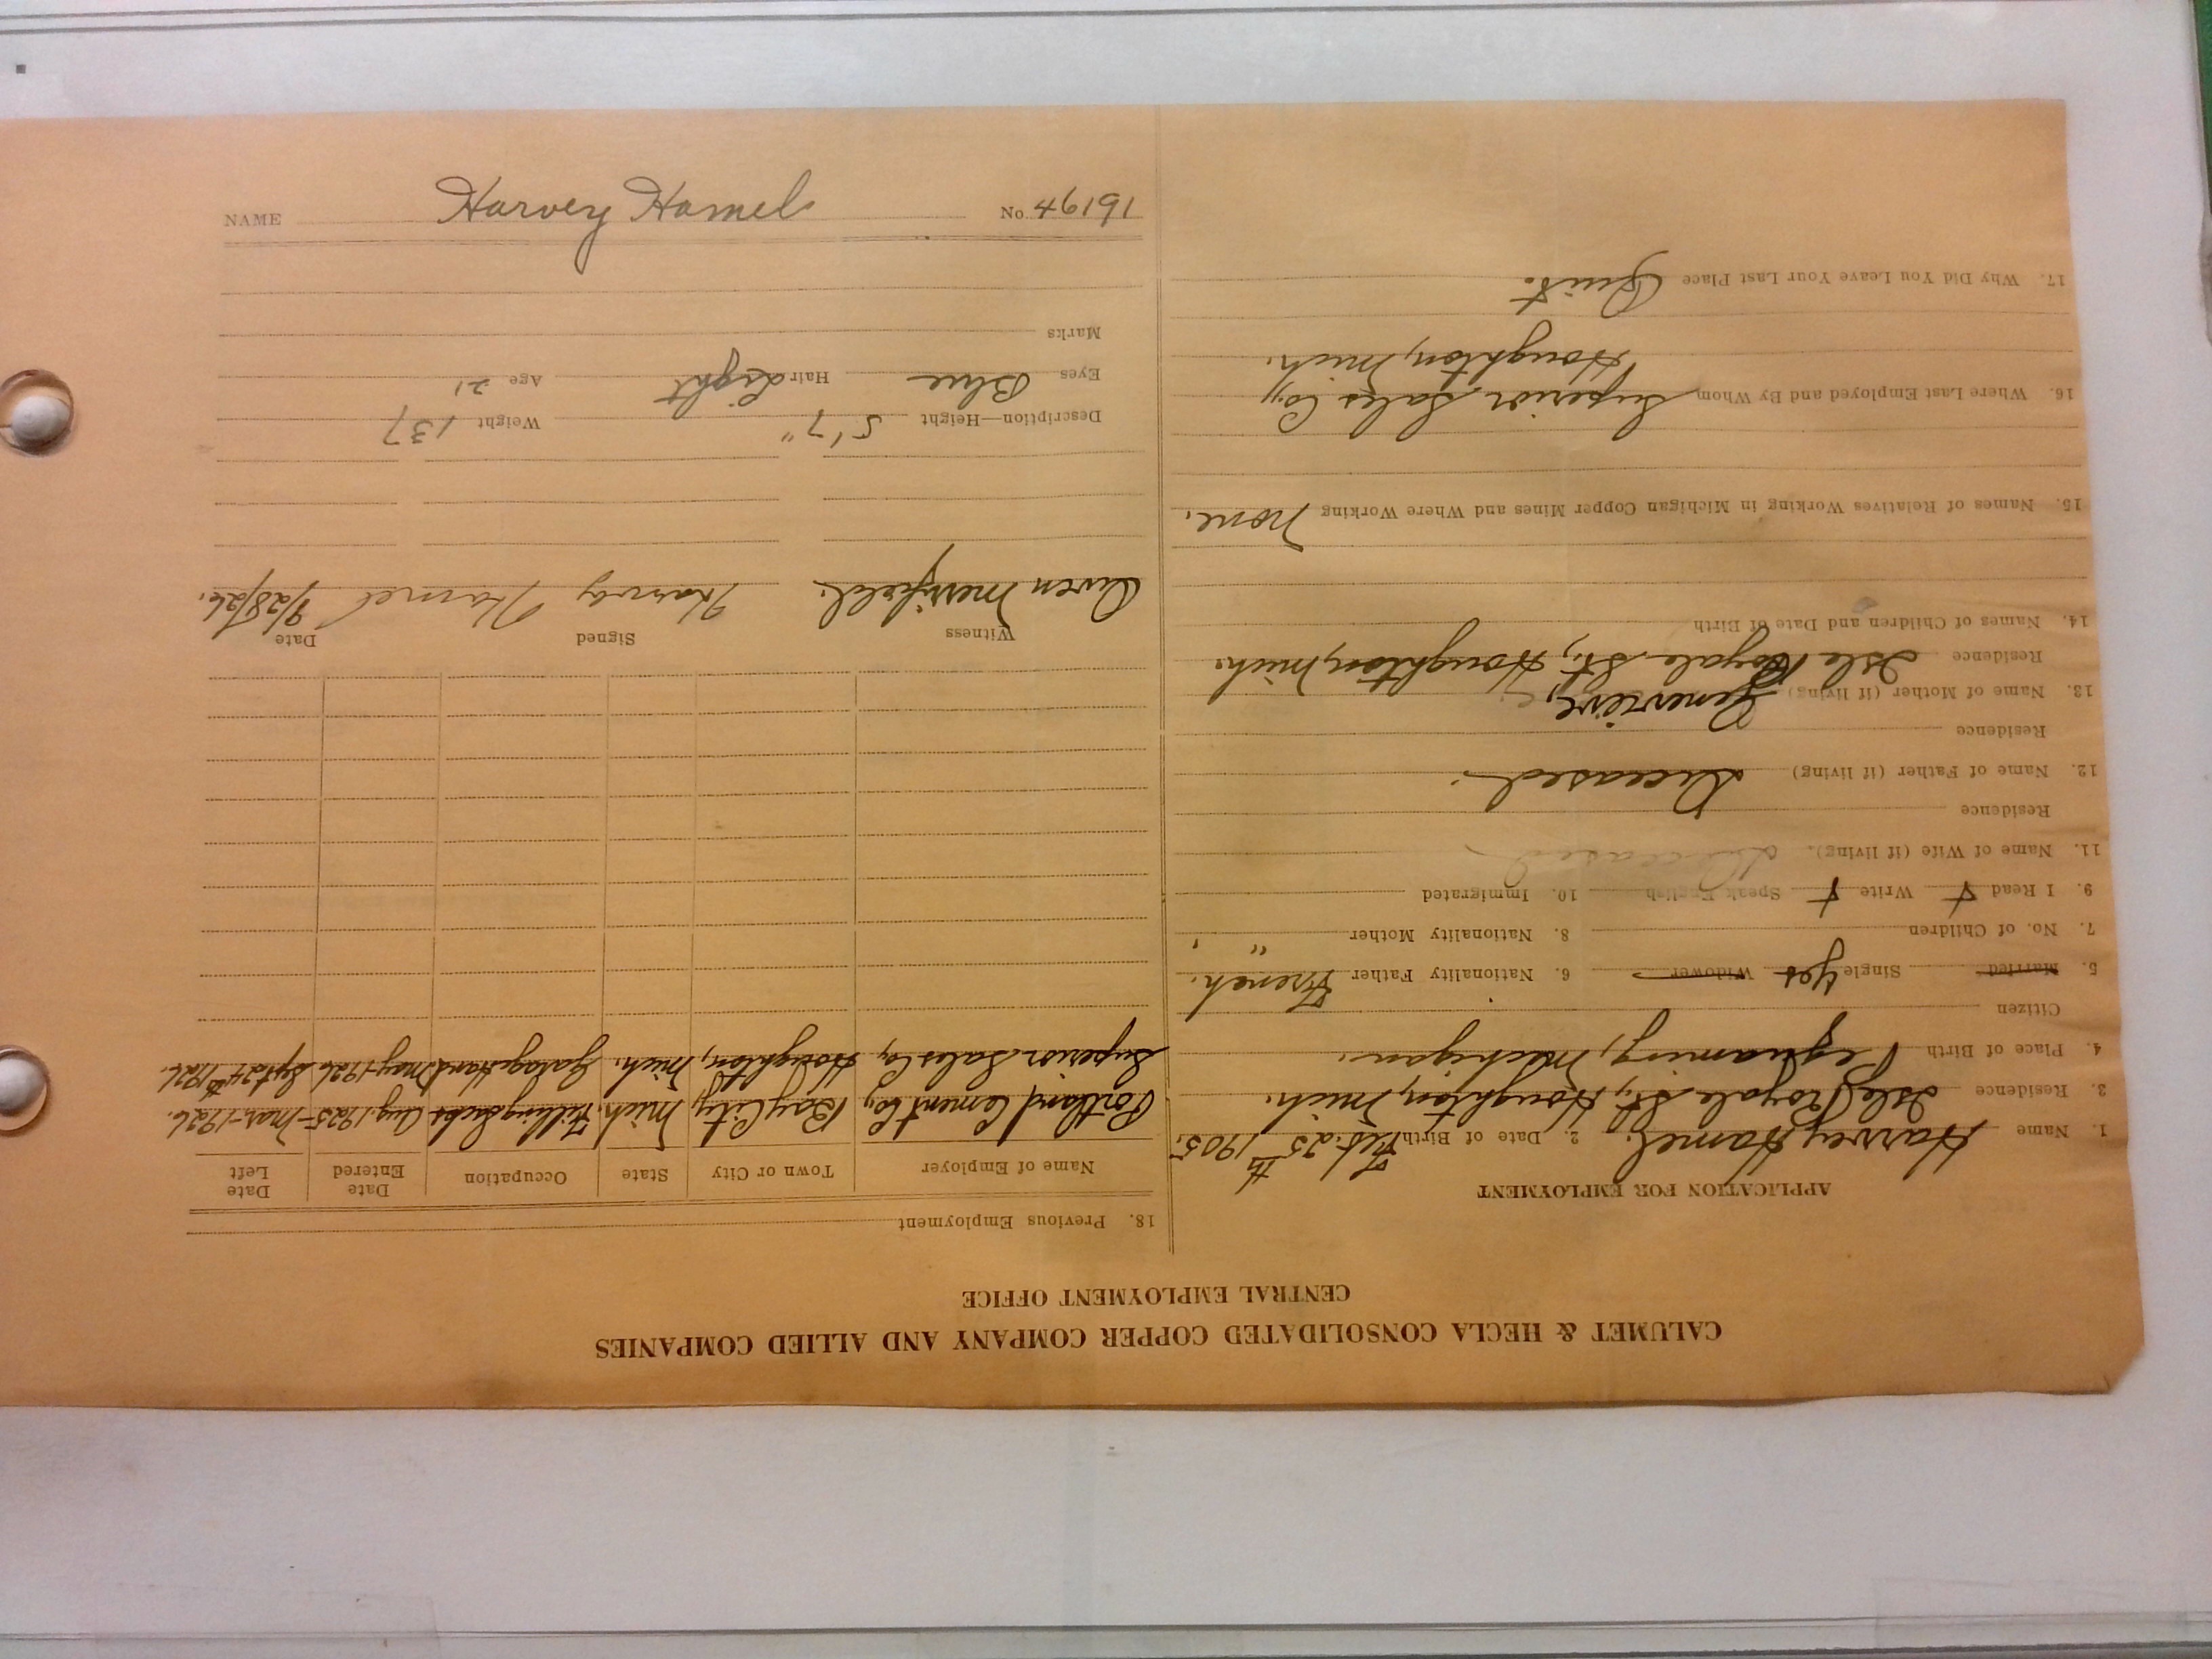 CALUMET & HECLA CONSOLIDATED COPPER COMPANY AND ALLIED COMPANIES
CENTRAL EMPLOYMENT OFFICE
APPLICATION FOR EMPLOYMENT
1. Name Harvey Hamel. 2. Date of Birth Feb. 25th 1905.
3. Residence Isle Royale St., Houghton, Mich.
4. Place of Birth Pequaming, Michigan.
Citizen
5. Married Single Yes Widower 6. Nationality Father French.
7. No. of Children 8. Nationality Mother " .
9. I Read + Write + Speak English 10. Immigrated
11. Name of Wife (if living). Deceased
Residence
12. Name of Father (if living) Deceased.
Residence
13. Name of Mother (if living) Genevieve,
Residence Isle Royale St., Houghton, Mich.
14. Names of Children and Date of Birth
15. Names of Relatives Working in Michigan Copper Mines and Where Working None.
16. Where Last Employed and By Whom Superior Sales Co,
Houghton, Mich.
17. Why Did You Leave Your Last Place Quit.
18. Previous Employment
Name of Employer Town or City State Occupation Date Entered Date Left
Portland Cement Co, Bay City, Mich. Filling Sacks Aug. 1925 - Mar-1926.
Superior Sales Co, Houghton, Mich. Garage Hand May-1926 Sept 24th 1926.
Witness Signed Date
Owen Merrifield. Harvey Hamel 9/28/26.
Description—Height 5' 7" Weight 137
Eyes Blue Hair Light Age 21
Marks
NAME Harvey Hamel No. 46191